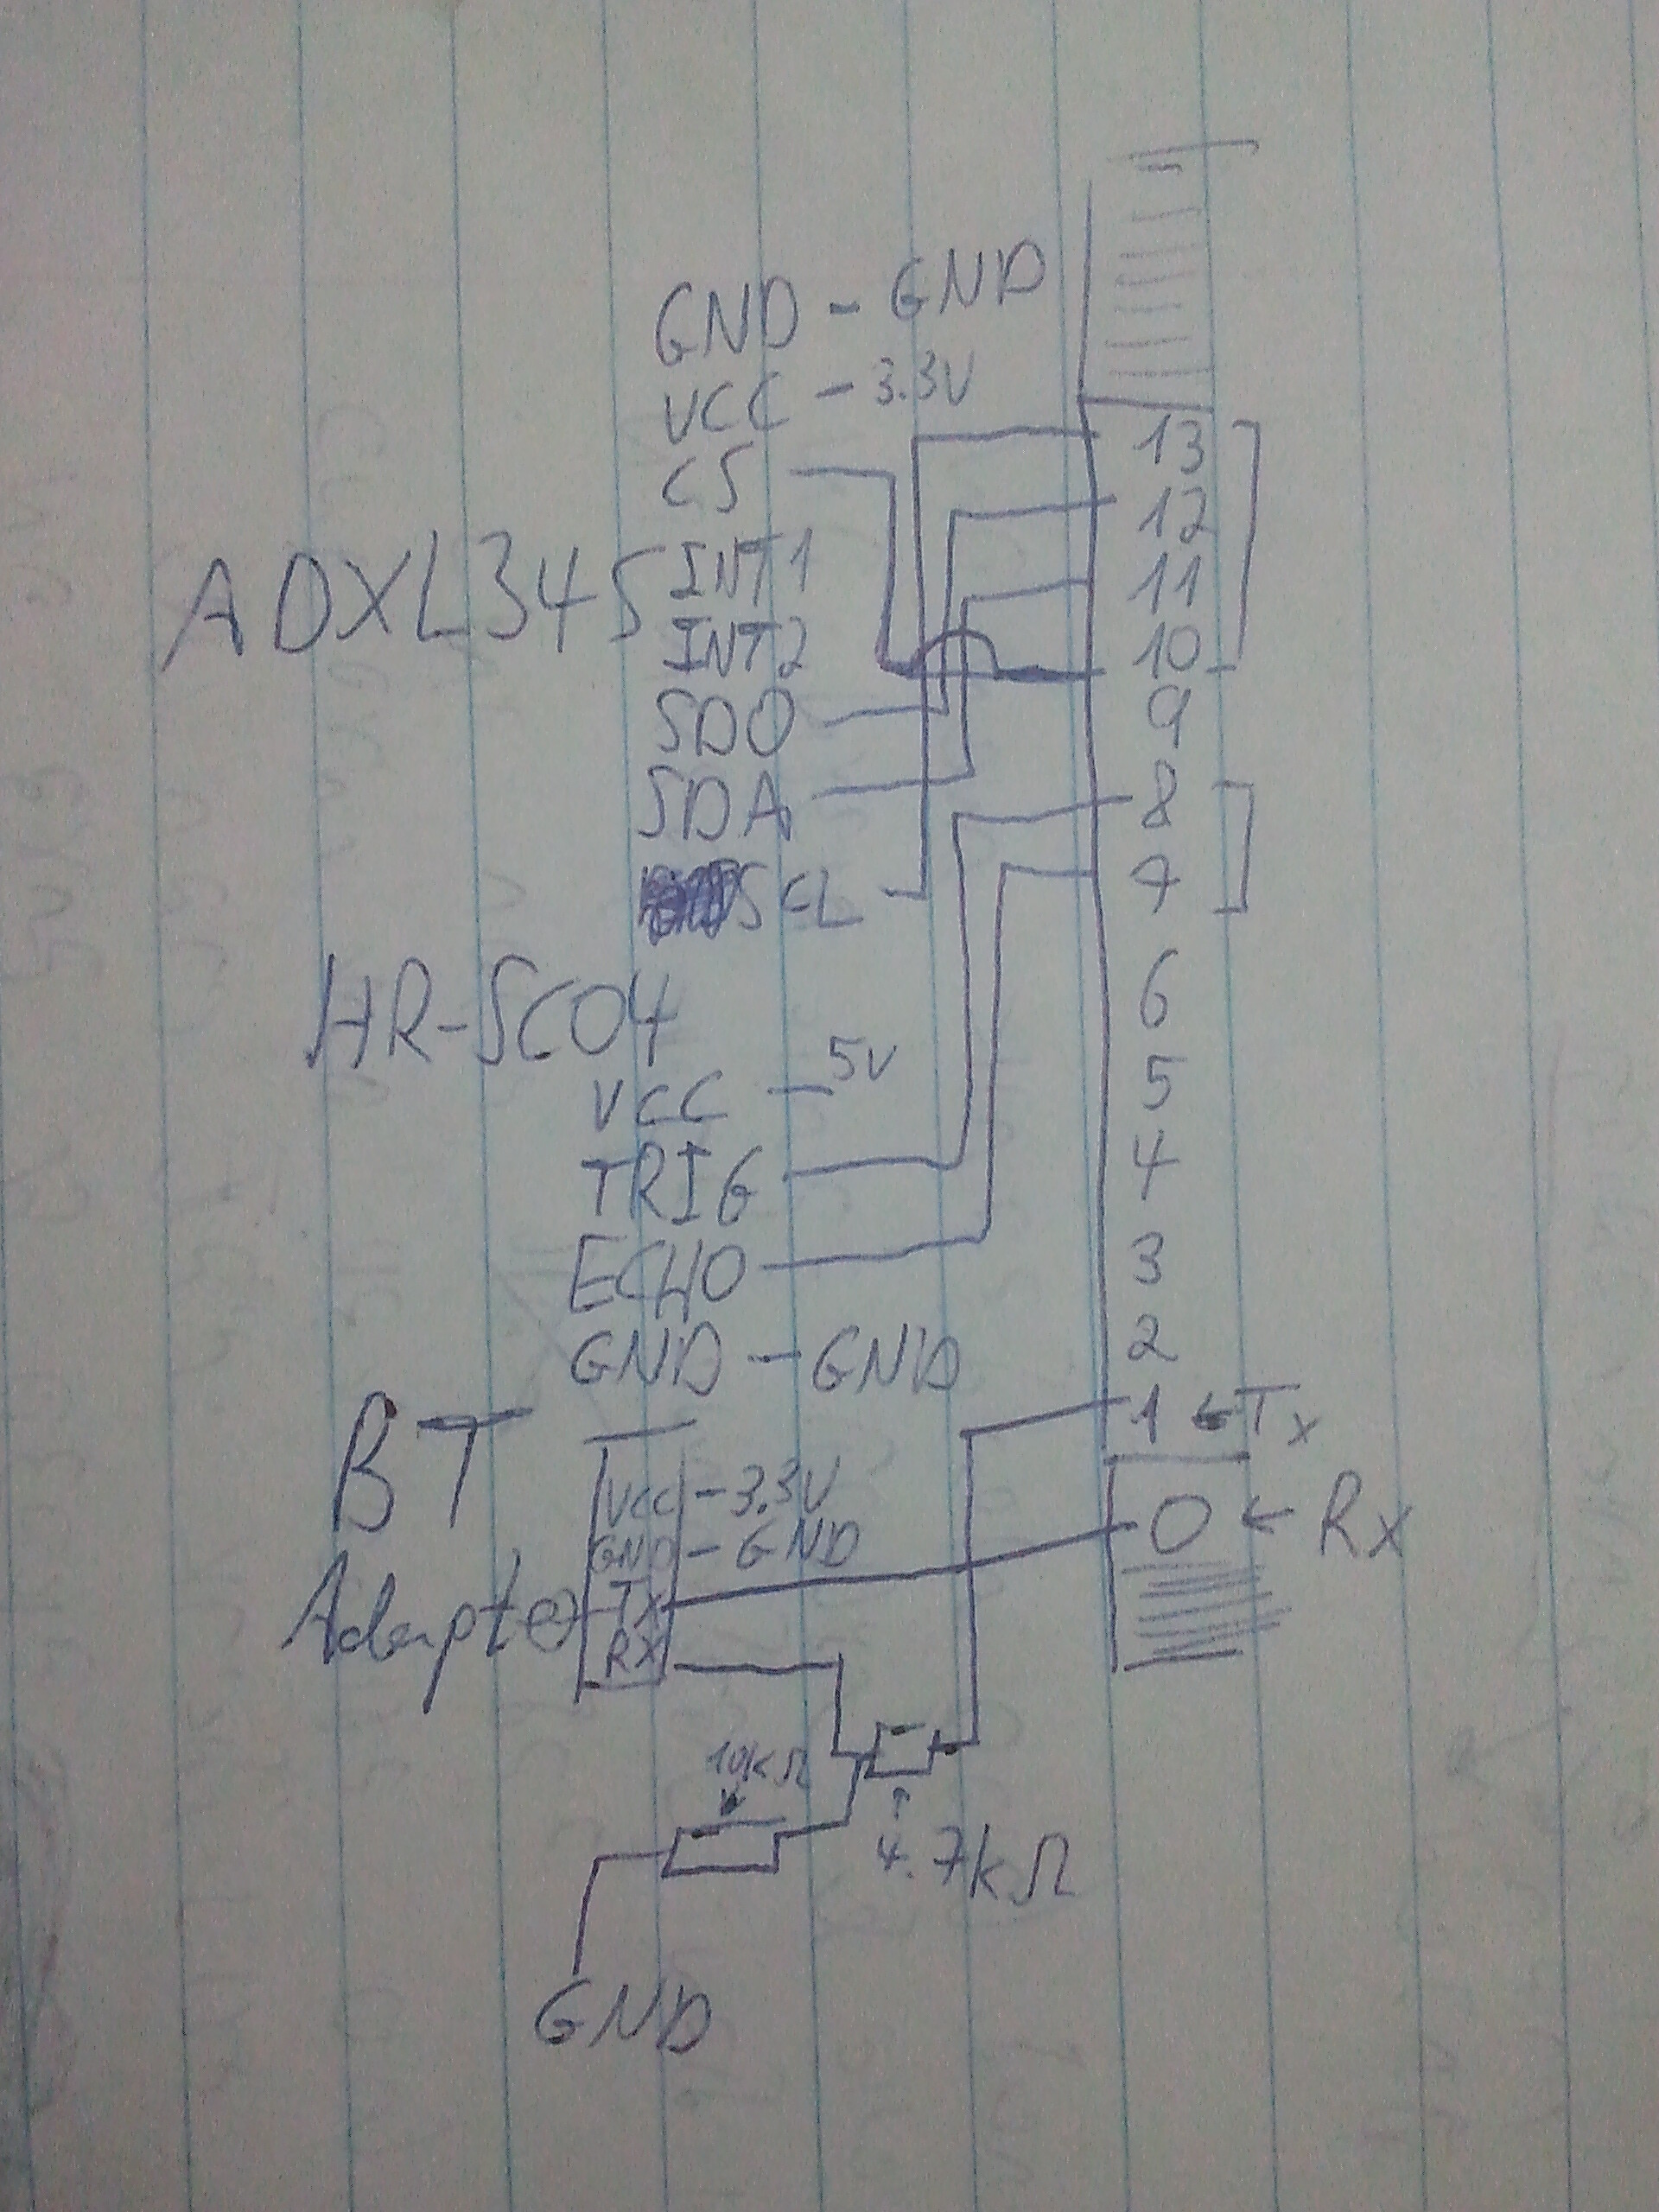 GND - GND
VCC - 3.3V
CS
ADXL345
INT1
INT2
SDO
SDA
SCL
13
12
11
10
9
8
7
6
5
4
3
2
1 ← Tx
0 ← Rx
HR-SC04
VCC - 5V
TRIG
ECHO
GND - GND
BT
Adapter
VCC - 3.3V
GND - GND
TX
RX
10kΩ
4.7kΩ
GND